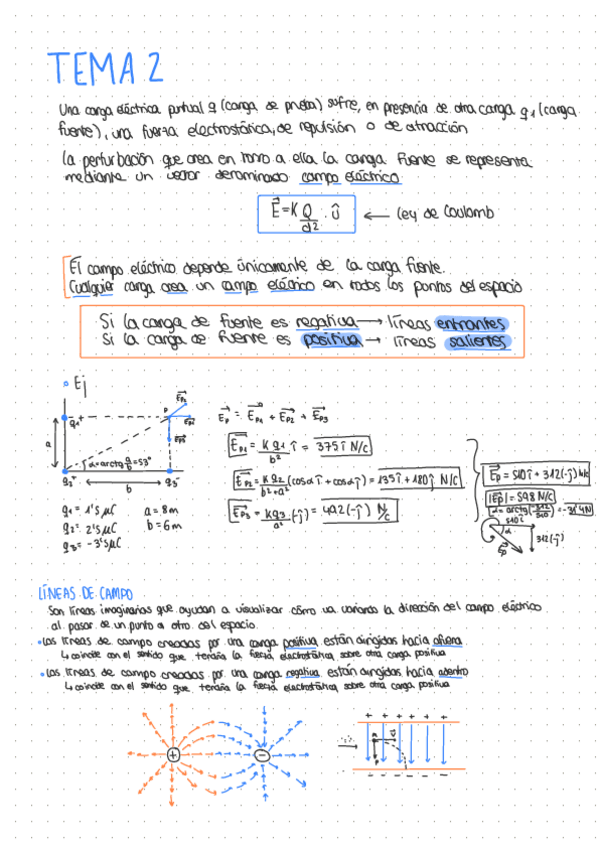 TEMA 2
Una carga eléctrica puntual q (carga de prueba) sufre, en presencia de otra carga q1 (carga
fuente), una fuerza electrostática, de repulsión o de atracción
La perturbación que crea en torno a ella la carga fuente se representa
mediante un vector denominado campo eléctrico
E = K Q/d² · û ← Ley de Coulomb
El campo eléctrico depende únicamente de la carga fuente.
Cualquier carga crea un campo eléctrico en todos los puntos del espacio
Si la carga de fuente es negativa → líneas entrantes
Si la carga de fuente es positiva → líneas salientes
Ej
Ep2
P
q1+
Ep1
Ep3
a
α=arctg a/b=53°
q2+ b q3-
q1 = 1'5μC a = 8m
q2 = 2'5μC b = 6m
q3 = -3'5μC
Ep = Ep1 + Ep2 + Ep3
Ep1 = K q1/b² î = 375 î N/C
Ep2 = K q2/b²+a² (cosα î + cosα ĵ) = 135î + 180ĵ N/C
Ep3 = K q3/a² (-ĵ) = 492(-ĵ) N/C
Ep = 510î + 312(-ĵ) N/C
|Ep| = 598 N/C
α = arctg(-312/510) = -31'4
510î
α
312(-ĵ)
Ep
LÍNEAS DE CAMPO
Son líneas imaginarias que ayudan a visualizar cómo va variando la dirección del campo eléctrico
al pasar de un punto a otro del espacio.
• Las líneas de campo creadas por una carga positiva están dirigidas hacia afuera
↳ coincide con el sentido que tendría la fuerza electrostática sobre otra carga positiva
• Las líneas de campo creadas por una carga negativa están dirigidas hacia adentro
↳ coincide con el sentido que tendría la fuerza electrostática sobre otra carga positiva
+ -
+ + + + + +
- - - - - -